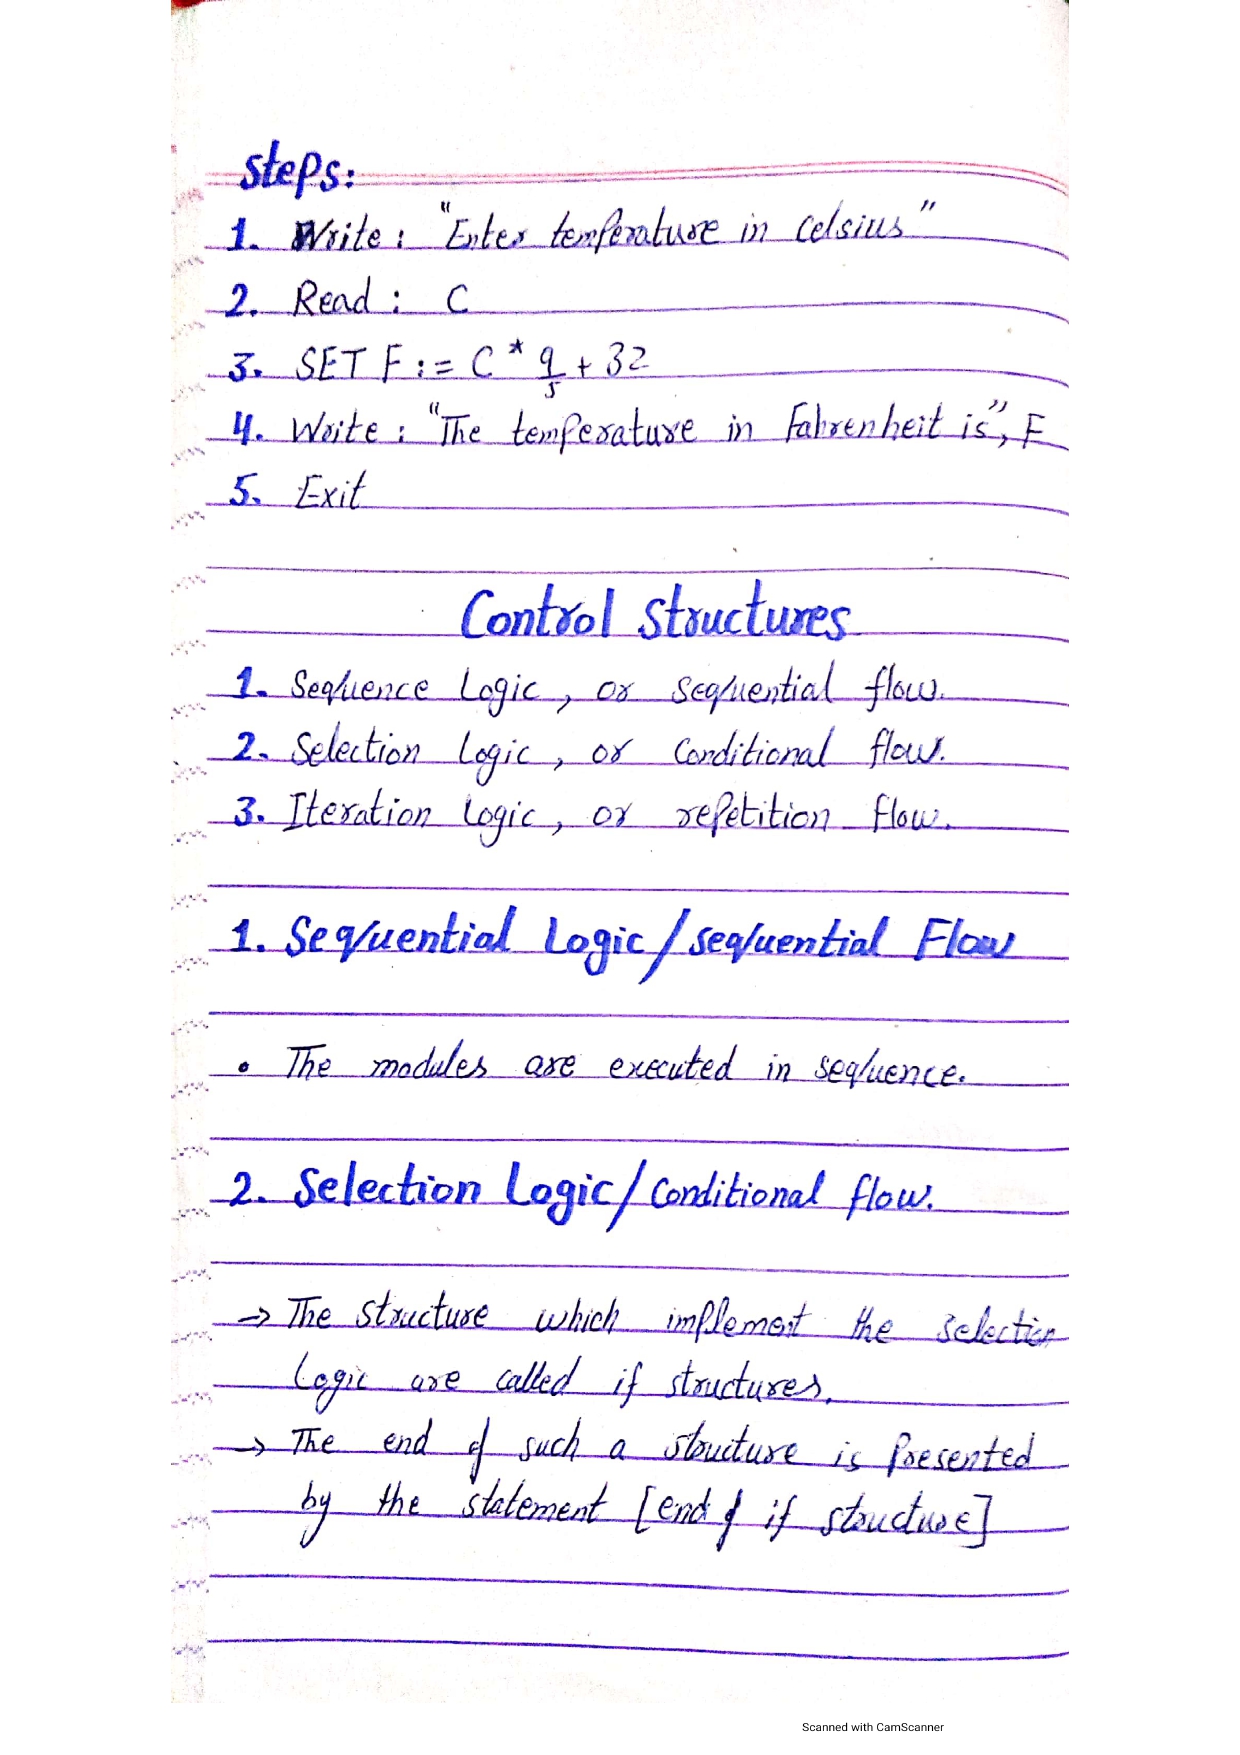 Steps:
1. Write : "Enter temperature in Celsius"
2. Read : C
3. SET F := C * 9/5 + 32
4. Write : "The temperature in Fahrenheit is", F
5. Exit
Control Structures
1. Sequence Logic, or sequential flow.
2. Selection Logic, or Conditional flow.
3. Iteration Logic, or repetition flow.
1. Sequential Logic/sequential Flow
• The modules are executed in sequence.
2. Selection Logic/Conditional flow.
→ The structure which implement the selection
Logic are called if structures.
→ The end of such a structure is Presented
by the statement [end of if structure]
Scanned with CamScanner